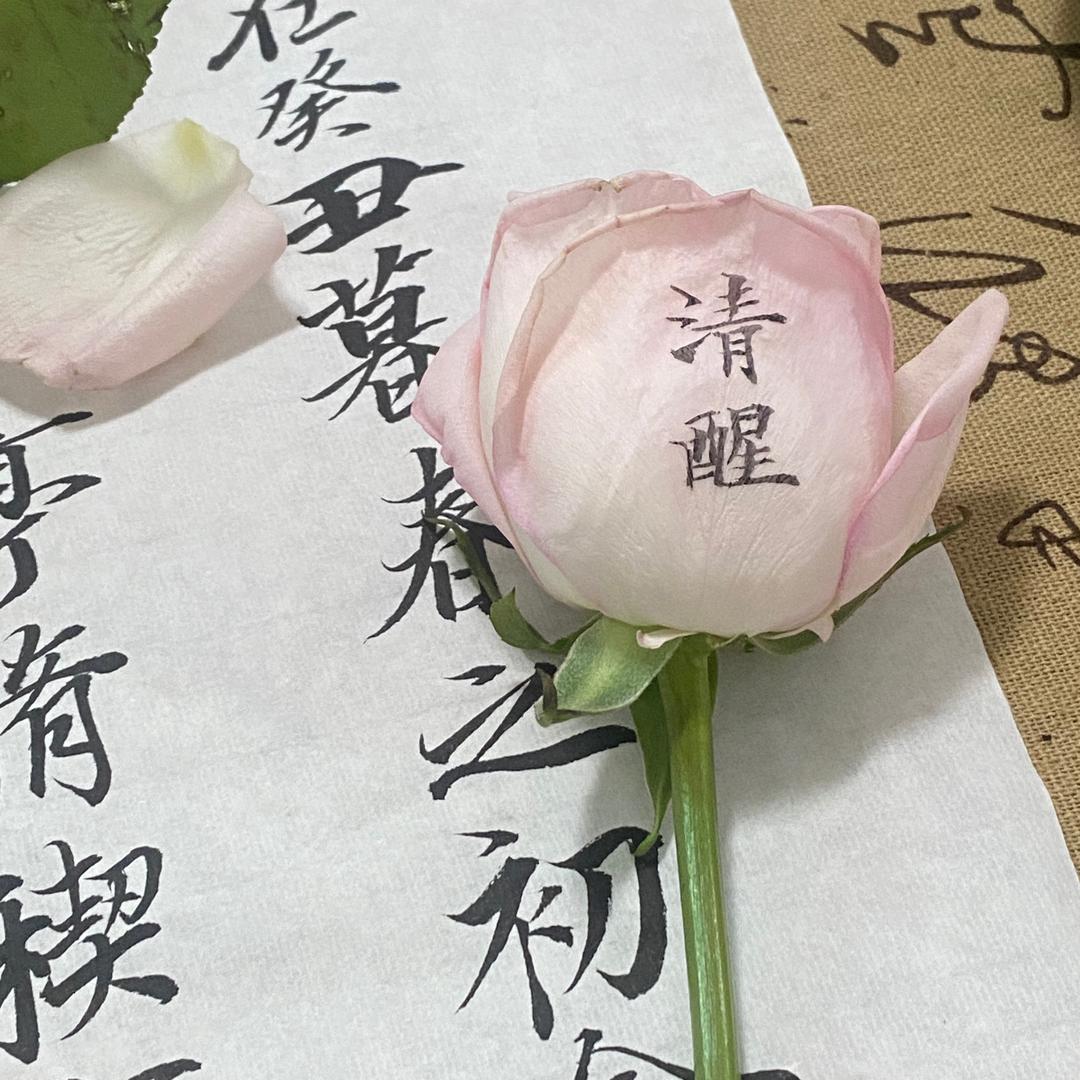 清醒
在癸丑暮春之初
亭脩禊